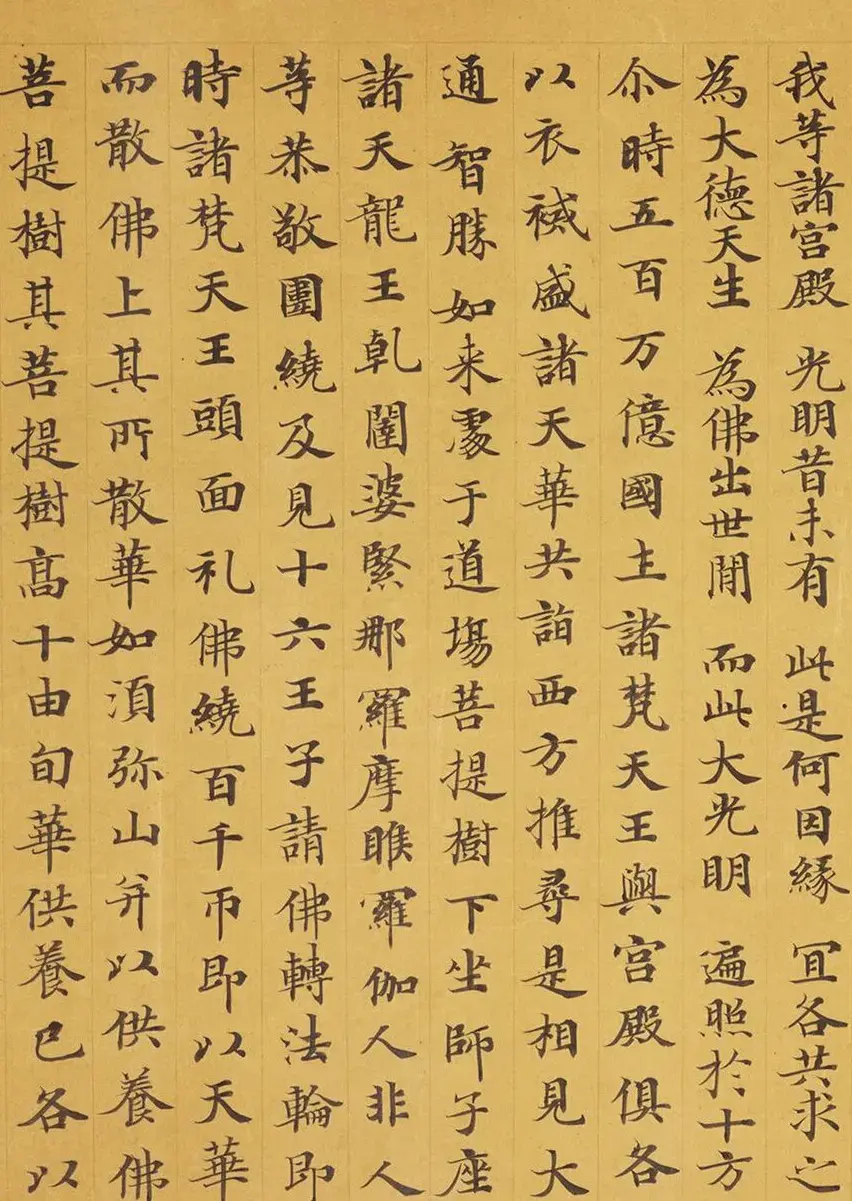 我等諸宮殿 光明昔未有 此是何因緣 冝各共求之
為大德天生 為佛出世間 而此大光明 遍照於十方
尒時五百万億國土諸梵天王與宮殿俱各
以衣裓盛諸天華共詣西方推尋是相見大
通智勝如来處于道場菩提樹下坐師子座
諸天龍王乹闥婆緊那羅摩睺羅伽人非人
等恭敬圍繞及見十六王子請佛轉法輪即
時諸梵天王頭面礼佛繞百千帀即以天華
而散佛上其所散華如湏弥山并以供養佛
菩提樹其菩提樹髙十由旬華供養已各以